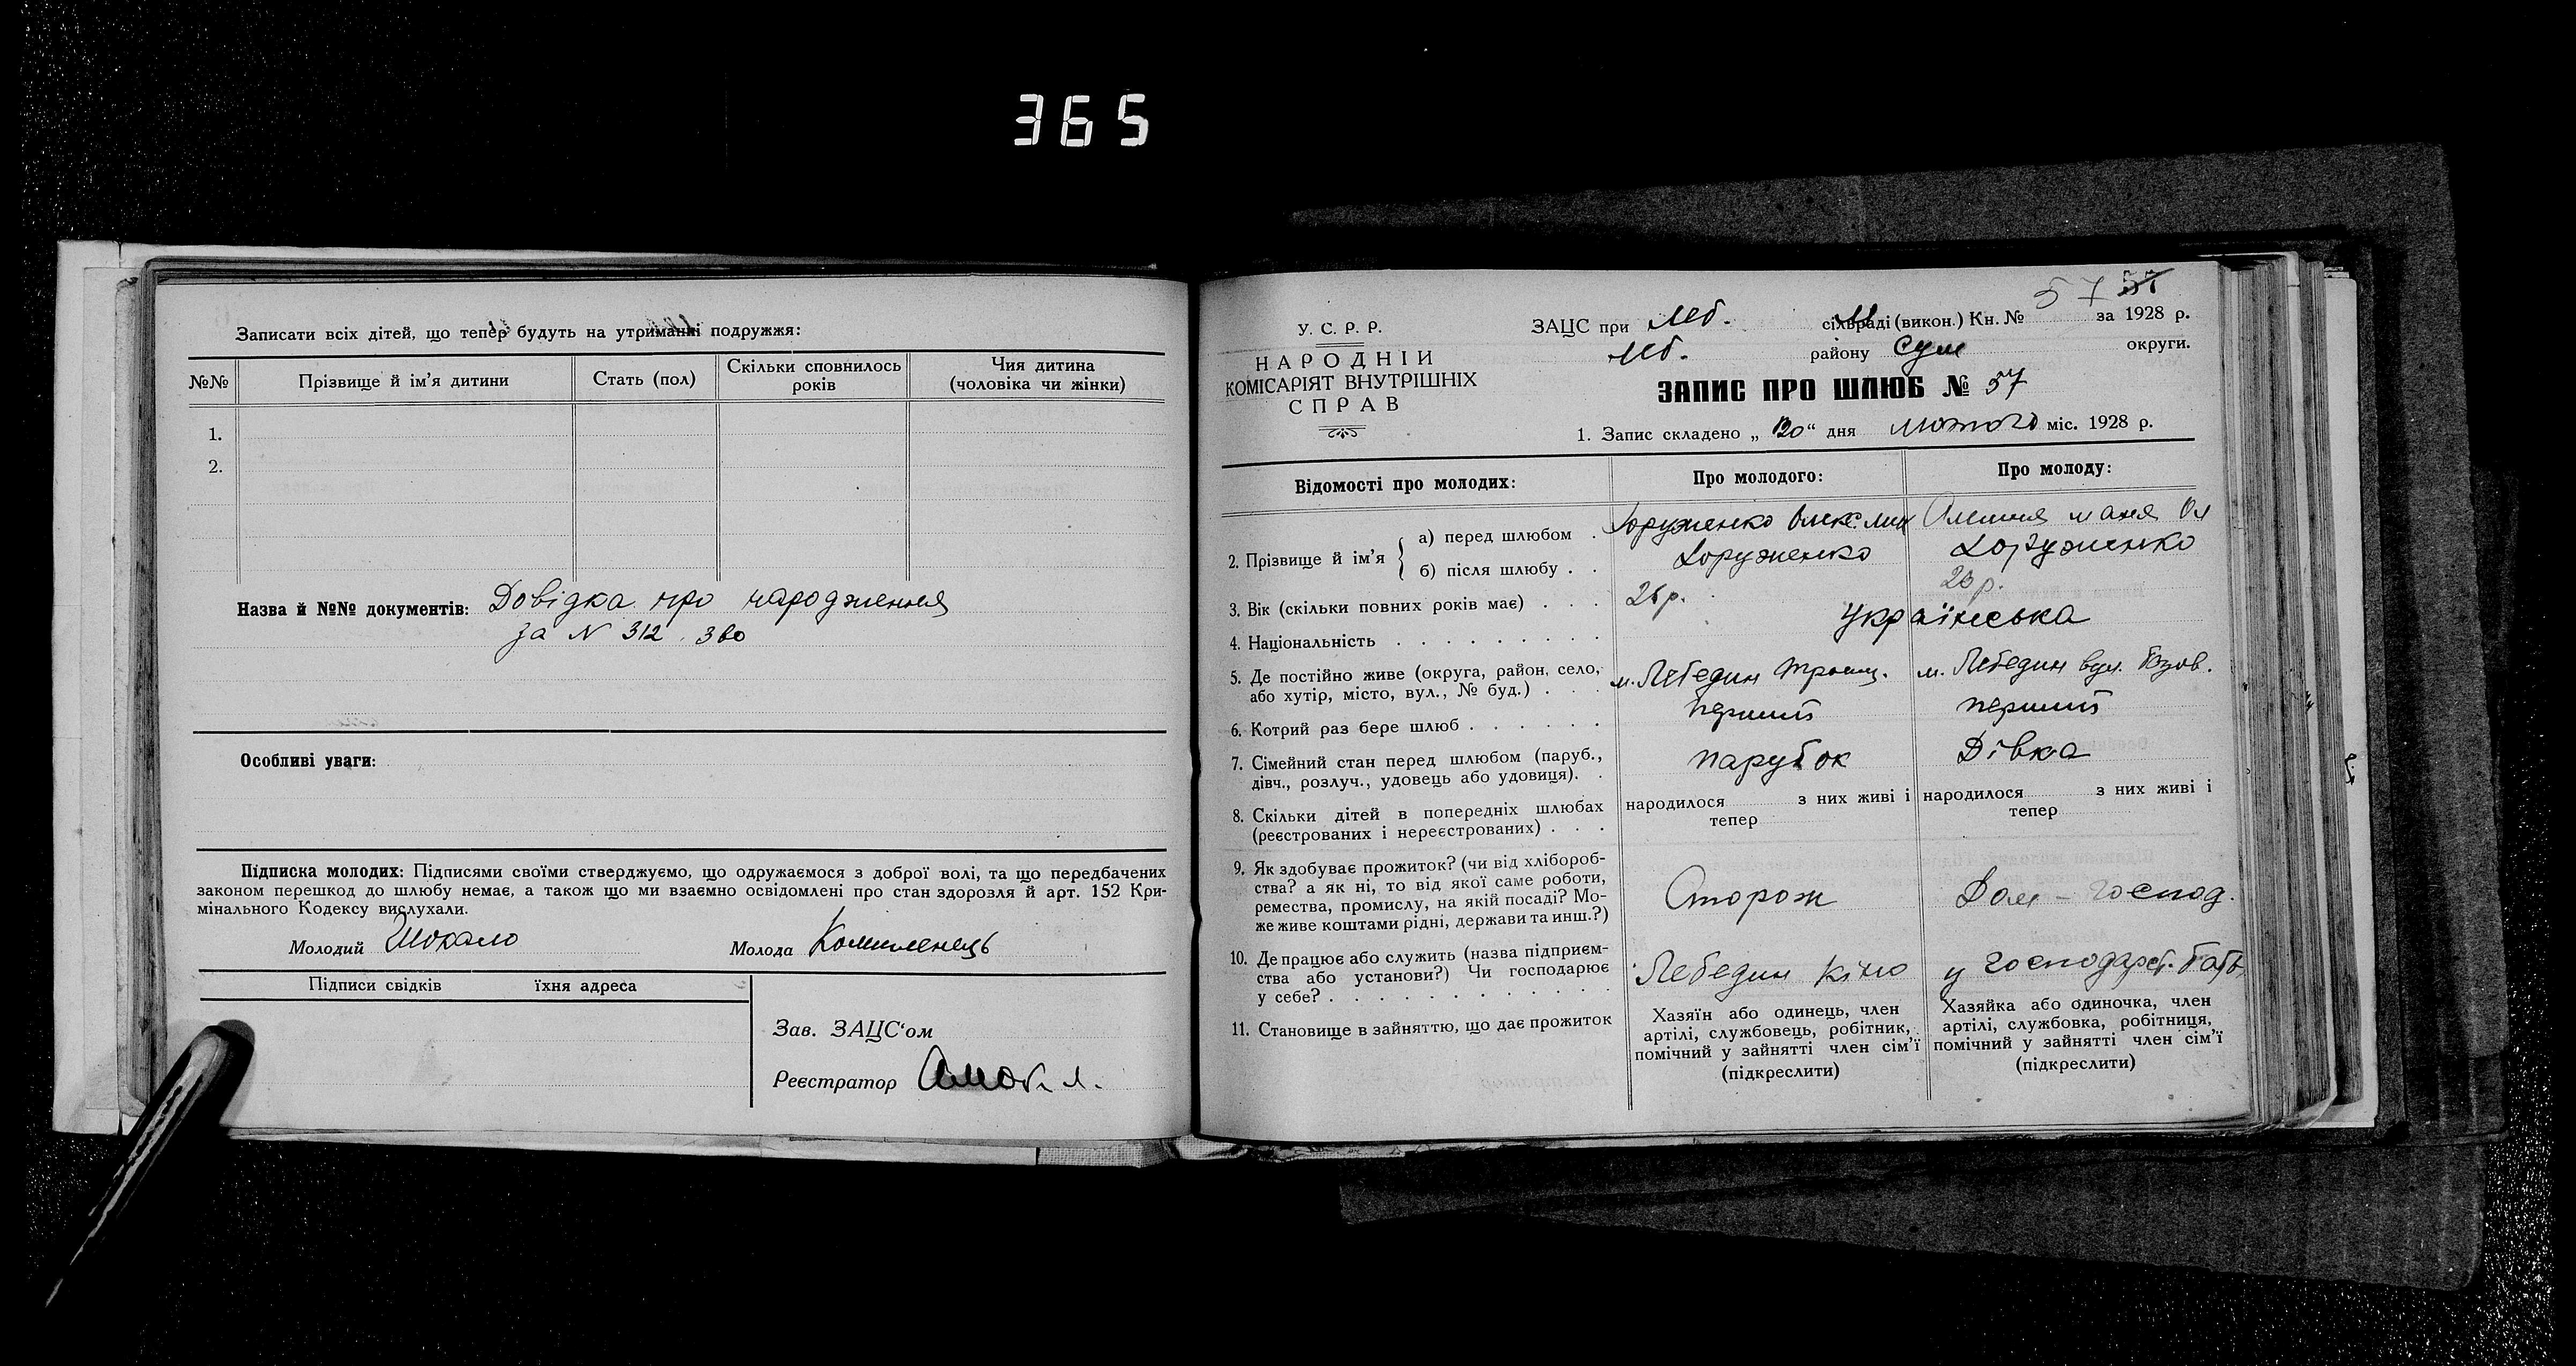 365
Записати всіх дітей, що тепер будуть на утриманні подружжя:
№№ Прізвище й ім'я дитини Стать (пол) Скільки сповнилось років Чия дитина (чоловіка чи жінки)
1.
2.
Назва й №№ документів: Довідка про народження
за N 312. 380
Особливі уваги:
Підписка молодих: Підписями своїми стверджуємо, що одружаємося з доброї волі, та що передбачених
законом перешкод до шлюбу немає, а також що ми взаємно освідомлені про стан здоровля й арт. 152 Кри-
мінального Кодексу вислухали.
Молодий Шокало Молода
Підписи свідків їхня адреса
Зав. ЗАЦС'ом
Реєстратор
У. С. Р. Р.
НАРОДНІЙ
КОМІСАРІЯТ ВНУТРІШНІХ
СПРАВ
57 57
ЗАЦС при Леб. М сільраді (викон.) Кн. № за 1928 р.
Леб. району Сум округи.
ЗАПИС ПРО ШЛЮБ № 57
1. Запис складено „20“ дня лютого міс. 1928 р.
Відомості про молодих: Про молодого: Про молоду:
2. Прізвище й ім'я
а) перед шлюбом .
б) після шлюбу . . Доруженко Доруженко
3. Вік (скільки повних років має) . . . 26 р. 20 р.
4. Національність . . . . . . . . . українська
5. Де постійно живе (округа, район, село,
або хутір, місто, вул., № буд.) . . . м. Лебедин м. Лебедин вул.
6. Котрий раз бере шлюб . . . . . . перший перший
7. Сімейний стан перед шлюбом (паруб.,
дівч., розлуч., удовець або удовиця). . парубок Дівка
8. Скільки дітей в попередніх шлюбах
(реєстрованих і нереєстрованих) . . .
народилося з них живі і
тепер
народилося з них живі і
тепер
9. Як здобуває прожиток? (чи від хлібороб-
ства? а як ні, то від якої саме роботи,
ремества, промислу, на якій посаді? Мо-
же живе коштами рідні, держави та инш.?)
Сторож Дом – господ.
10. Де працює або служить (назва підприєм-
ства або установи?) Чи господарює
у себе? . . . . . . . . . . . .
Лебедин кіно у господарст. батьк
11. Становище в зайняттю, що дає прожиток
Хазяїн або одинець, член
артілі, службовець, робітник,
помічний у зайнятті член сім'ї
(підкреслити)
Хазяйка або одиночка, член
артілі, службовка, робітниця,
помічний у зайнятті член сім'ї
(підкреслити)